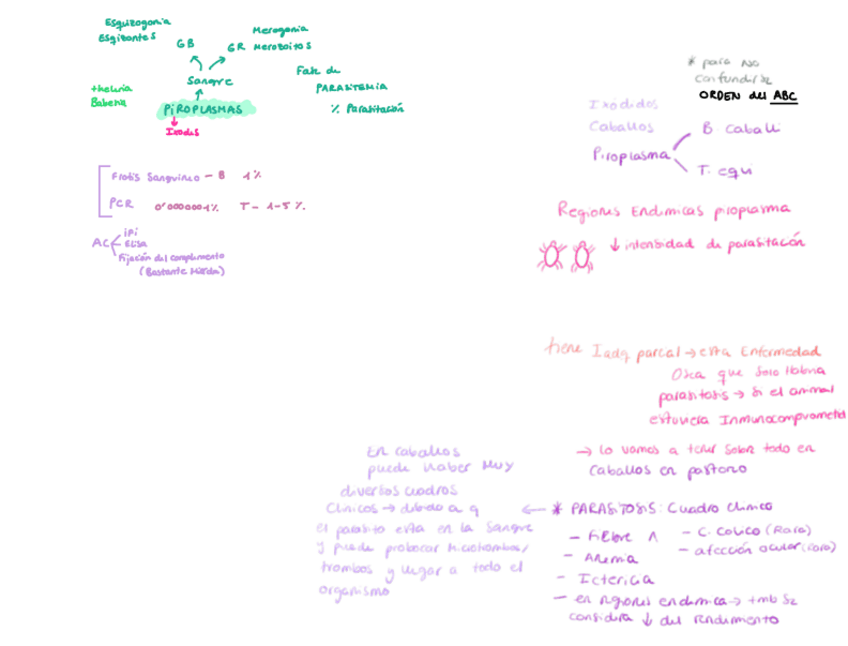 Esquizogonia
Esqizontes
GB
Merogonia
GR Merozoitos
Sangre
theleria
Babesia
PIROPLASMAS
Ixodes
Fase de
PARASITEMIA
% Parasitación
Frotis Sanguineo - B 1%
PCR 0'000001% T - 1-5%.
AC
iFi
Elisa
Fijación del complemento
(Bastante Mierda)
* para NO
confundirse
ORDEN del ABC
Ixódidos
Caballos
Piroplasma
B. caballi
T. equi
Regiones Endemicas piroplasma
↓ intensidad de parasitación
tiene Iadq parcial → evita Enfermedad
Osea que solo habria
parasitosis → Si el animal
estuviera Inmunocomprometid
→ lo vamos a tener sobre todo en
Caballos en pastoreo
* PARASITOSIS: Cuadro Clinico
- Fiebre ^
- Anemia
- Ictericia
- en regiones endemica → tmb se
considera ↓ del rendimiento
- C. Colico (Rara)
- afección ocular (raro)
En caballos
puede haber Muy
diversos cuadros
Clinicos → debido a q
el parasito esta en la Sangre
y puede probocar Microtrombos/
trombos y llegar a todo el
organismo